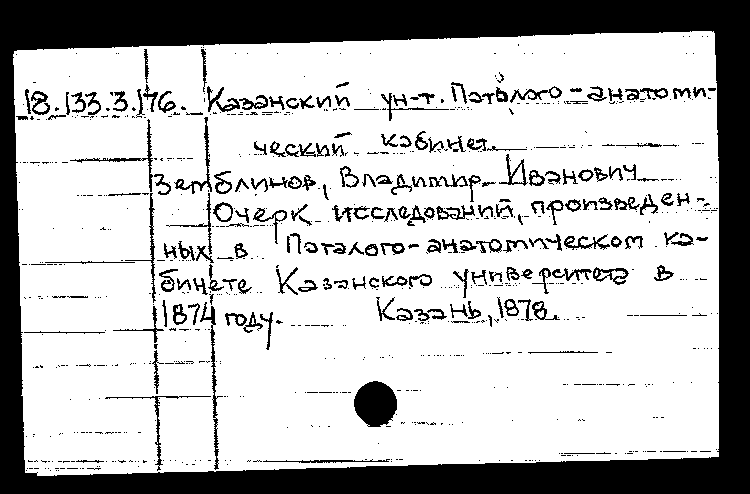 18.133.3.176. Казанский ун-т. Патолого-анатоми-
ческий кабинет.
Земблинов, Владимир Иванович
Очерк исследований, произведен-
ных в Паталого-анатомическом ка-
бинете Казанского университета в
1874 году. Казань, 1878.